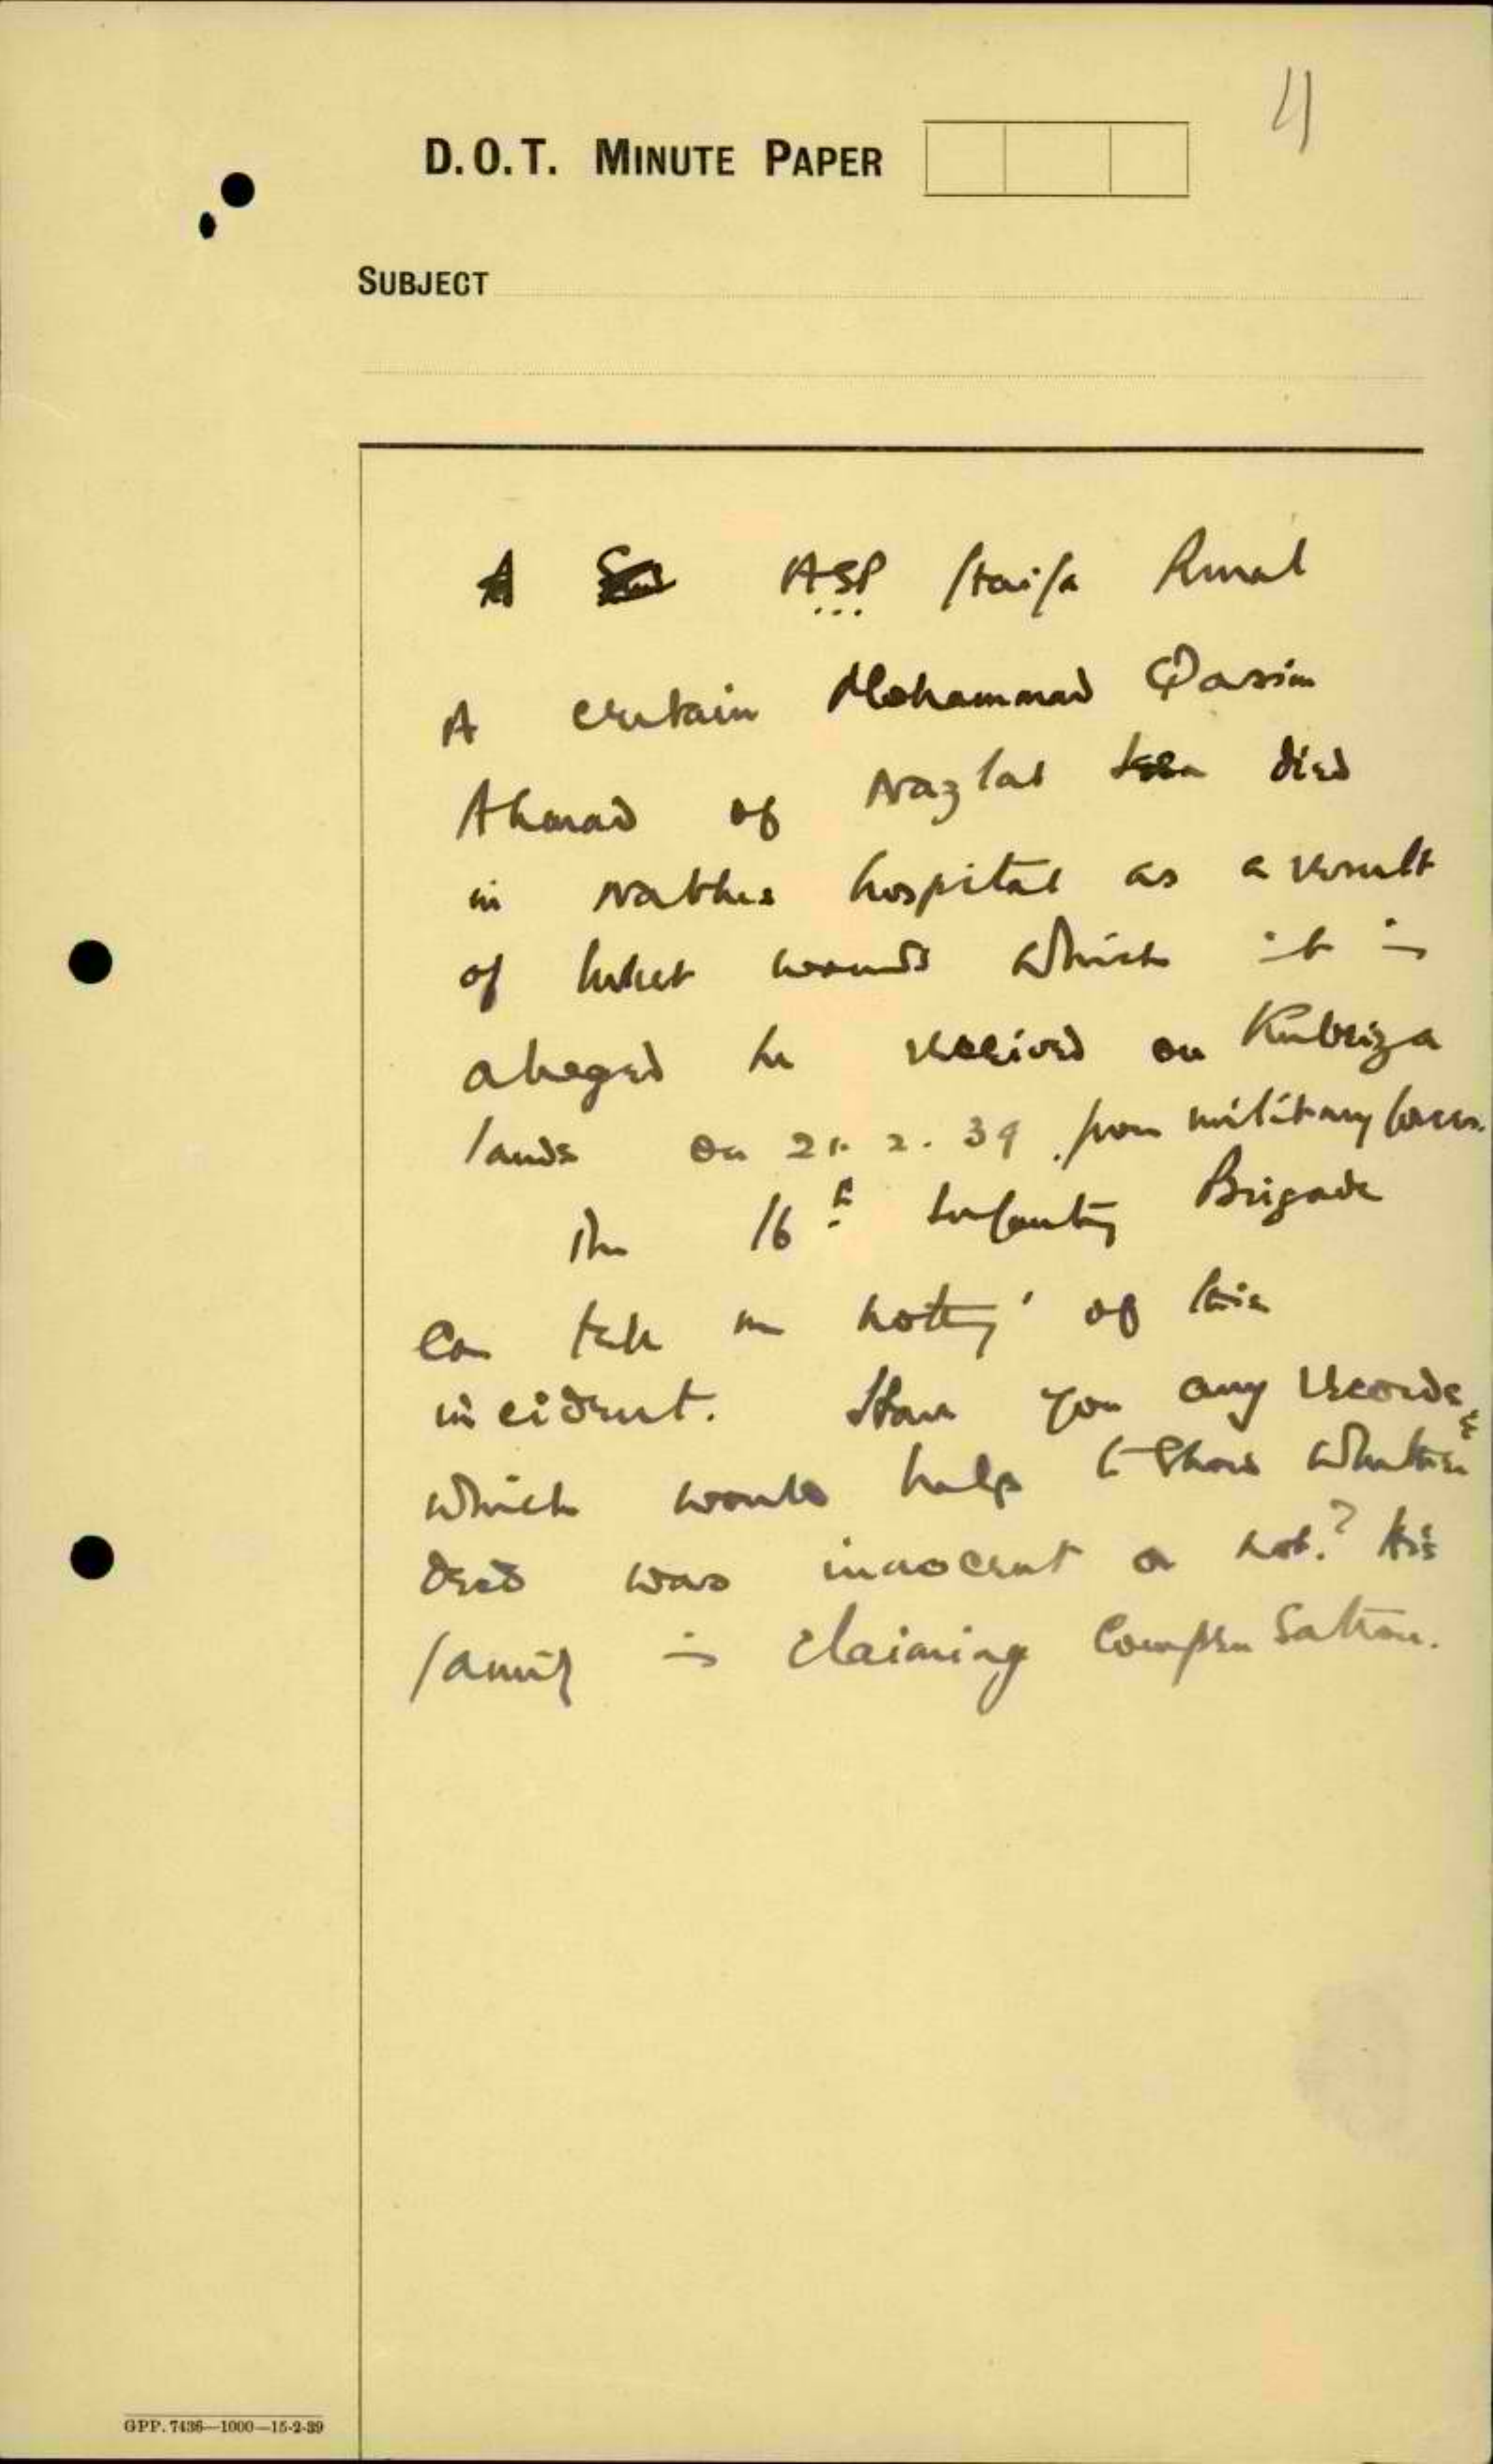 4
D.O.T. MINUTE PAPER
SUBJECT
ASP Haifa Rural
A certain Mohammad Qasim
Ahmad of Nazlat Issa died
in Nablus hospital as a result
of bullet wounds which it is
alleged he received on Kubriza
lands on 21. 2. 39 from military forces.
The 16th Infantry Brigade
can tell me nothing of this
incident. Have you any records
which would help to show whether
decd was innocent or not? His
family is claiming compensation.
GPP. 7436—1000—15-2-39